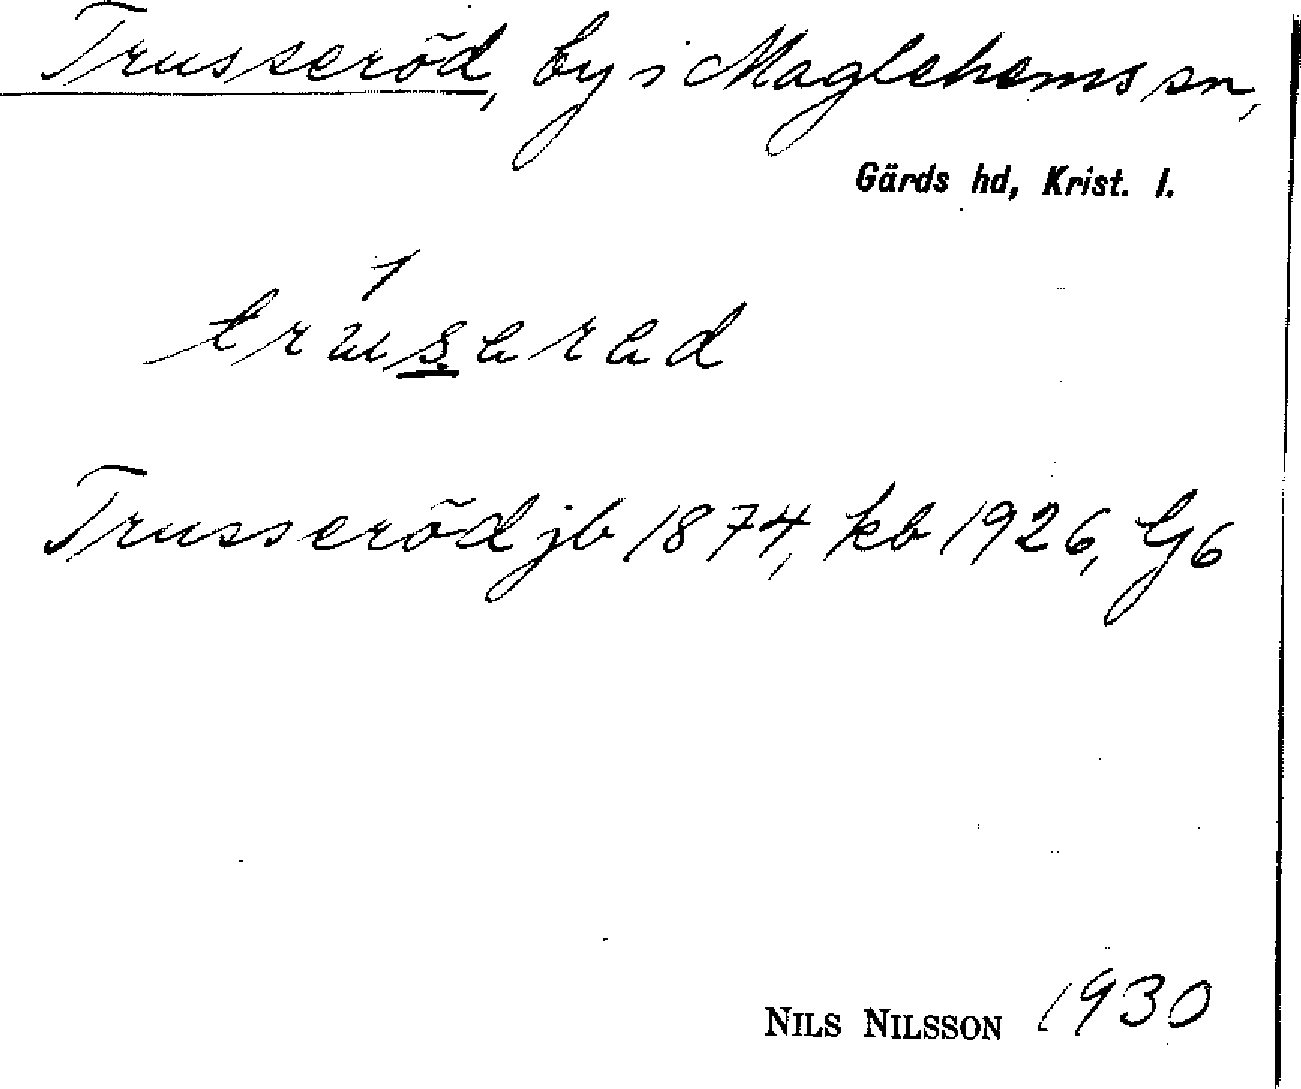 Trusseröd, by i Maglehems sn,
Gärds hd, Krist. l.
Trusseröd jb 1874, kb 1926, Gj6
NILS NILSSON 1930